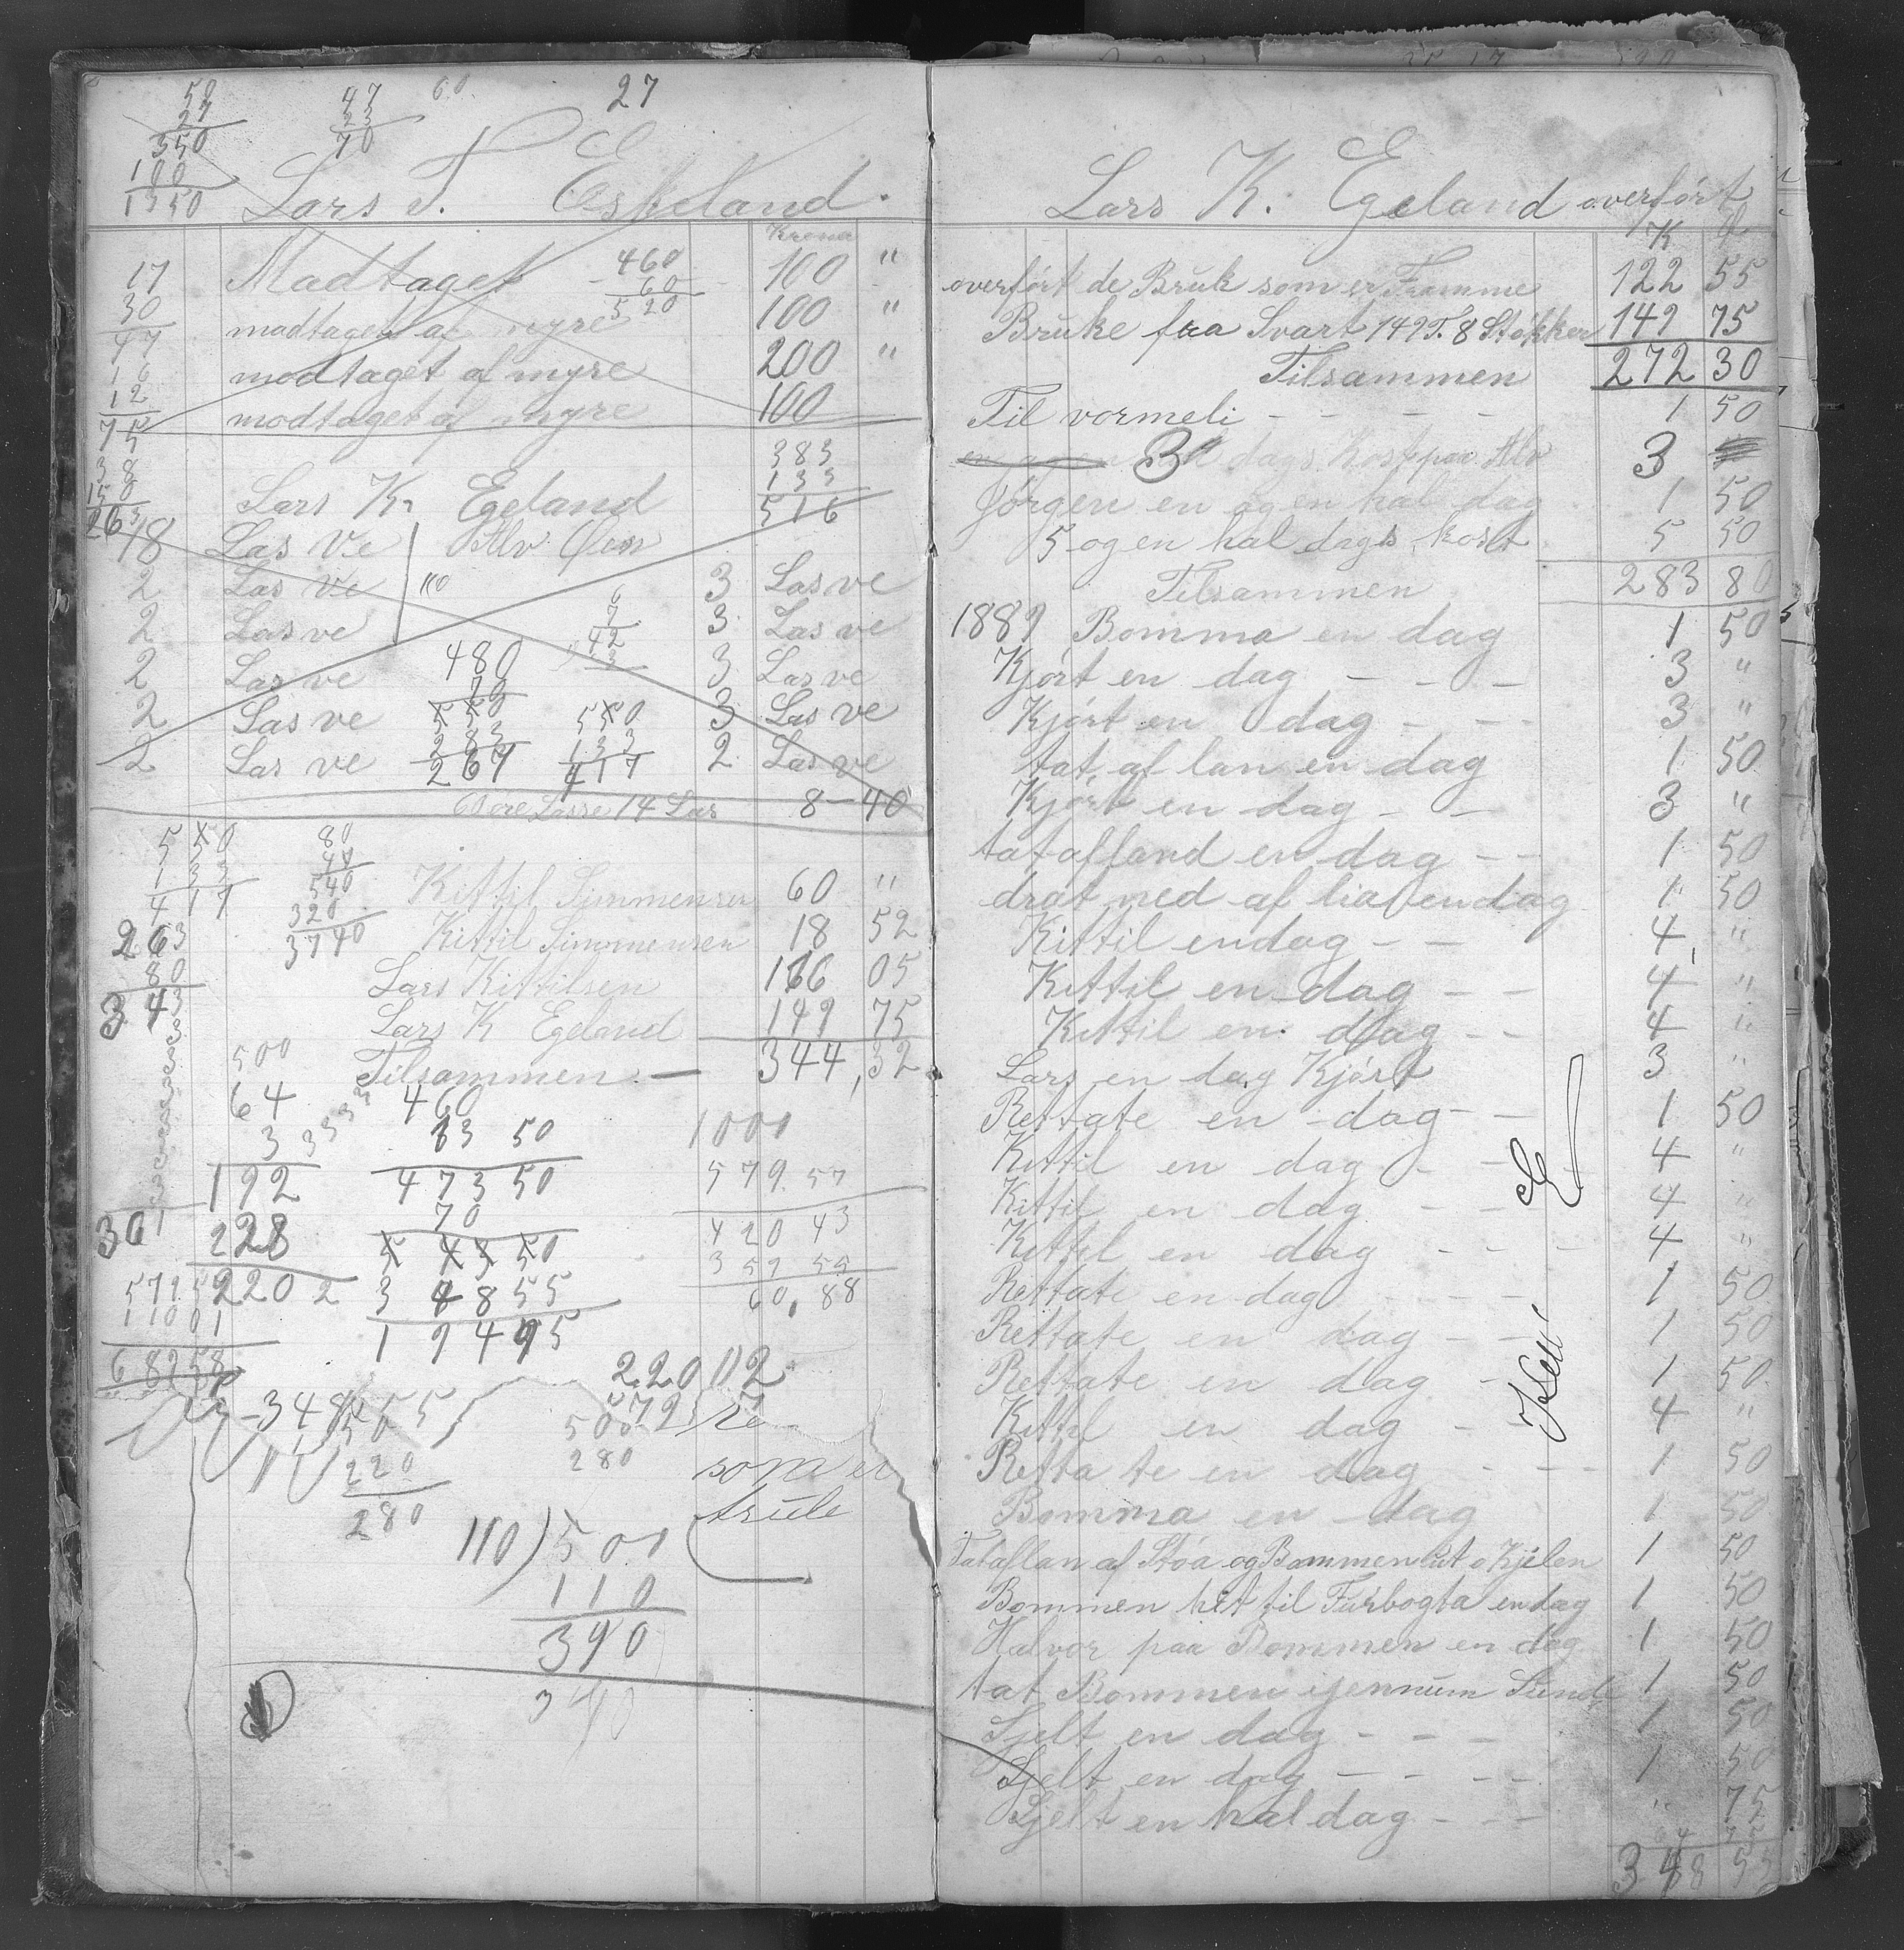 27
50
27
350
100
1350
47
23
70
60
Lars T. Eskeland.
Krona
17 Madtaget 100 "
30 madtaget af myre 100 "
47
modtaget af myre 200 "
modtaget af myre 100
460
60
520
16
12
75
38
150
263
383
133
516
Lars K. Egeland
18 Las Ve Alv Øen
2 Las Ve " 3 Las ve
2 Las ve 3 Las ve
2 Las ve 3 Las ve
2 Las ve 3 Las ve
2 Las ve 2 Las ve
6
7
42
480
70
550
283
267
550
133
417
60 øre Lasse 14 Las 8-40
550
133
417
80
540
320
3740
Kittil Simmensen 60 "
Kittil Simmensen 18 52
Lars Kittilsen 116 05
Lars K Egeland 149 75
Tilsammen — 344,32
263
80
343
301
500
64
3
192
228
220 2
460
13 50
473 50
70
5 43 50
3 48 55
1 94 95
1000
579 57
420 43
359 55
60,88
579 5
110 01
689 58
220 02
579
348 55
500
220
280
500
280
som er
110) 500
110
390
340
Lars K. Egeland overført
K Ø
overført de Bruk som er Framme 122 55
Bruke fra Svart 149 T. 8 Støkker 149 75
Tilsammen 272 30
Til vormeli - - - - 1 50
3 dags Kost paa Alv 3
Jørgen en og en hal dag 1 50
5 og en hal dags kost 5 50
Tilsammen 283 80
1889 Bomma en dag 1 50
Kjørt en dag - - - 3 "
Kjørt en dag - - - 3 "
tat af lan en dag 1 50
Kjørt en dag - - 3 "
tat af land en dag - - 1 50
drat ned af lia en dag 1 50
Kittil en dag - - 4 "
Kittil en dag - - 4 "
Kittil en dag - - 4 "
Lars en dag Kjørt 3 "
Rettate en dag - - 1 50
Kittil en dag - - - 4 "
Kittil en dag - - 4 "
Kittil en dag - - - 4 "
Rettate en dag - - - 1 50
Rettate en dag - - 1 50
Rettate en dag - 1 50
Kittil en dag - 4 "
Rettate en dag - - - 1 50
Bomma en dag 1 50
Tat af lan af Støa og Bommen ut o Kjilen 1 50
Bommen hit til Furbogta en dag 1 50
Halvor paa Bommen en dag 1 50
tat Bommen igennum Sunde 1 50
Sjelt en dag - - - 1 50
Sjelt en dag - - - - 1 50
Sjelt en hal dag - - - " 75
348 55